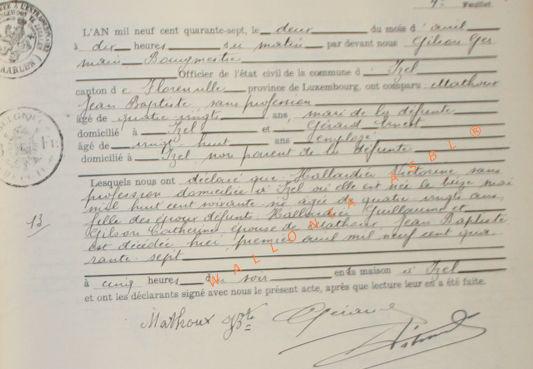 Feuillet
L'AN mil neuf cent quarante-sept, le deux du mois d' avril
à dix heures du matin par devant nous Gilson Ger
main Bourgmestre
Officier de l'état civil de la commune d' Izel
canton de Florenville province de Luxembourg, ont comparu Mathoux
Jean Baptiste, sans profession
âgé de quatre vingts ans, mari de la défunte
domicilié à Izel et Gérard Ernest
âgé de vingt huit ans employé
domicilié à Izel non parent de la défunte
Lesquels nous ont déclaré que Hallardin Victorine sans
profession domiciliée à Izel où elle est née le treize mai
mil huit cent soixante six âgée de quatre vingts ans,
fille des époux défunts Hallardin Guillaume et
Gilson Catherine, épouse de Mathoux, Jean Baptiste
est décédée hier, premier avril mil neuf cent qua
rante sept
à cinq heures du soir en la maison à Izel
et ont les déclarants signé avec nous le présent acte, après que lecture leur en a été faite.
13
Mathoux JBte Gérard
Gilson
WALLONIA ASBL ®